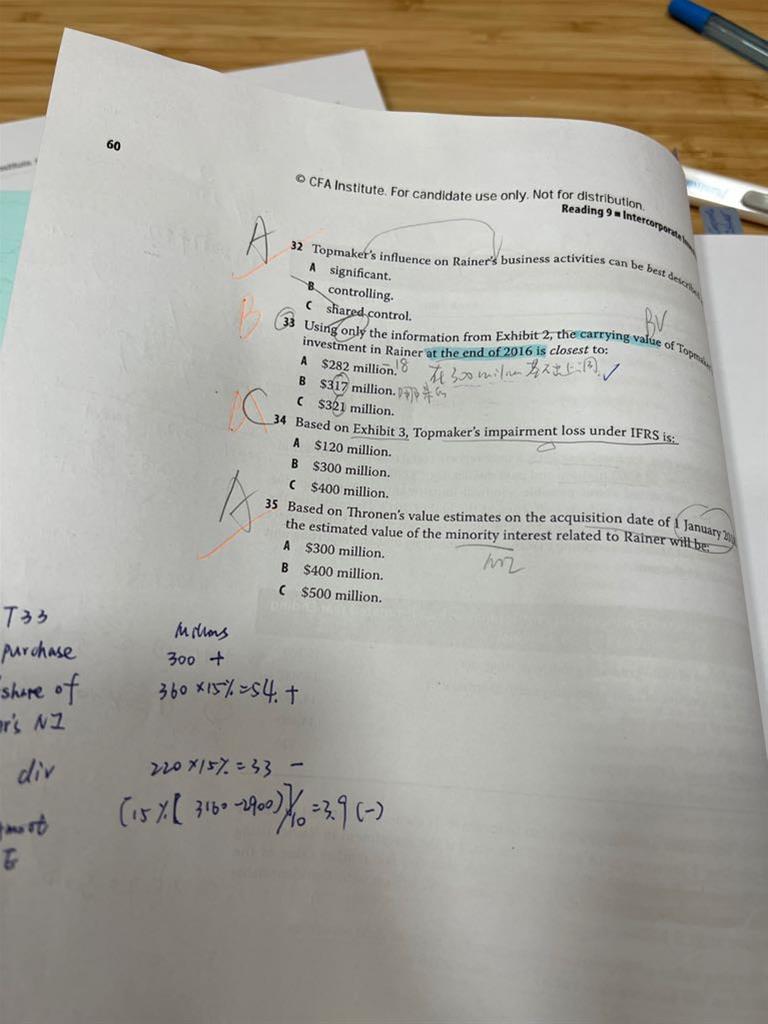 60
© CFA Institute. For candidate use only. Not for distribution.
Reading 9 ■ Intercorporate
A
32 Topmaker's influence on Rainer's business activities can be best described
A significant.
B controlling.
C shared control.
BV
B
33 Using only the information from Exhibit 2, the carrying value of Topmaker
investment in Rainer at the end of 2016 is closest to:
A $282 million. 18
B $317 million.
C $321 million.
C
34 Based on Exhibit 3, Topmaker's impairment loss under IFRS is:
A $120 million.
B $300 million.
C $400 million.
A
35 Based on Thronen's value estimates on the acquisition date of 1 January
the estimated value of the minority interest related to Rainer will be:
A $300 million.
B $400 million.
C $500 million.
T33
Millions
purchase 300 +
share of 360 × 15% = 54. +
r's NI
div 220 × 15% = 33 −
(15% [ 3160 − 2900)]/10 = 3.9 (−)